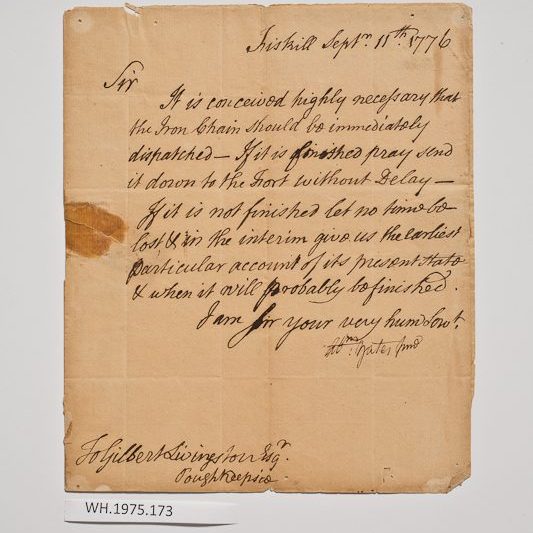 Fiskill Septr. 11th. 1776
Sir
It is conceived highly necessary that
the Iron Chain should be immediately
dispatched — If it is finished pray send
it down to the Fort without Delay —
If it is not finished let no time be
lost & in the interim give us the earliest
particular account of its present state
& when it will probably be finished.
I am Sir your very hum Servt.
Abm. Yates Junr
To Gilbert Livingston Esqr.
Poughkeepsie
WH.1975.173